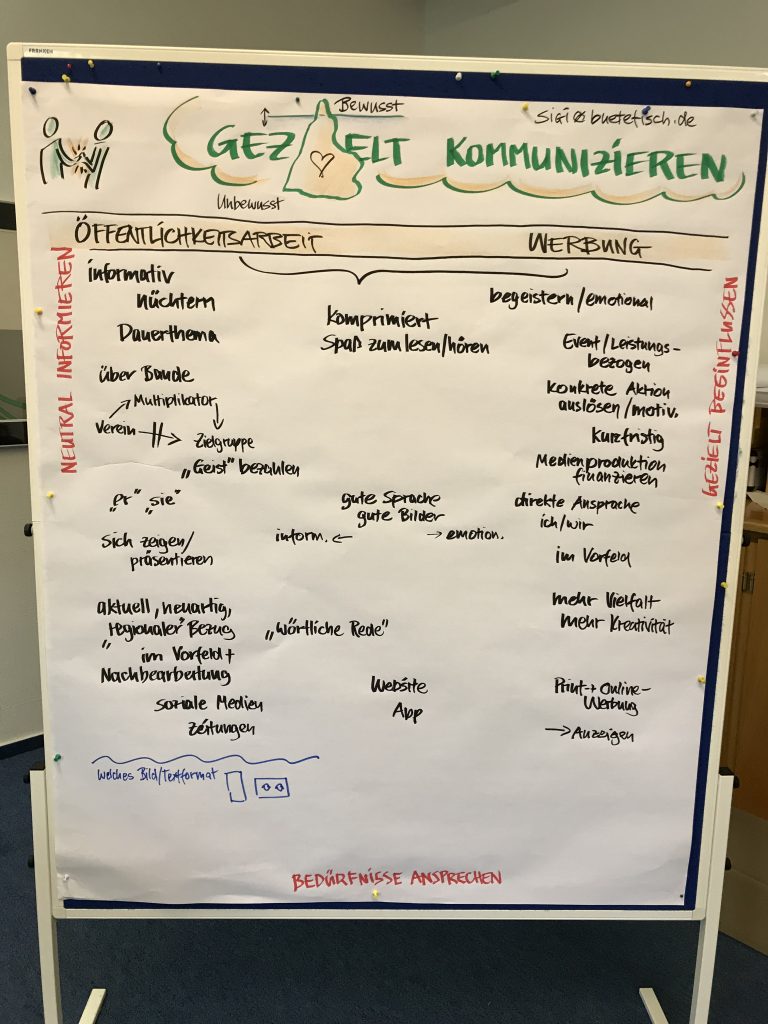 FRANKEN
Bewusst
sigi@buetefisch.de
GEZIELT KOMMUNIZIEREN
Unbewusst
ÖFFENTLICHKEITSARBEIT
WERBUNG
NEUTRAL INFORMIEREN
informativ
nüchtern
Dauerthema
über Bande
Multiplikator
Verein
Zielgruppe
„Geist" bezahlen
„er" „sie"
sich zeigen/
präsentieren
aktuell, neuartig,
„regionaler" Bezug
im Vorfeld +
Nachbearbeitung
soziale Medien
Zeitungen
komprimiert
Spaß zum lesen/hören
gute Sprache
gute Bilder
inform. ← → emotion.
„Wörtliche Rede"
Website
App
begeistern/emotional
Event/Leistungs-
bezogen
konkrete Aktion
auslösen/motiv.
kurzfristig
Medienproduktion
finanzieren
direkte Ansprache
ich/wir
im Vorfeld
mehr Vielfalt
mehr Kreativität
Print → Online-
Werbung
→ Anzeigen
GEZIELT BEEINFLUSSEN
welches Bild/Textformat
BEDÜRFNISSE ANSPRECHEN